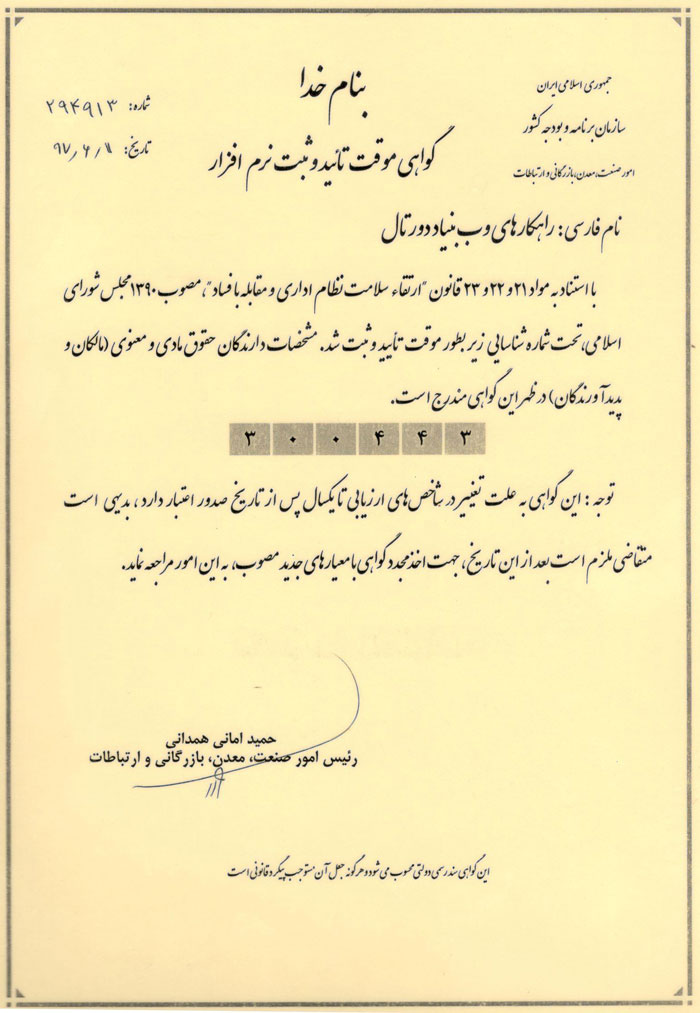 بنام خدا
جمهوری اسلامی ایران
سازمان برنامه و بودجه کشور
امور صنعت، معدن، بازرگانی و ارتباطات
شماره: ۲۹۴۹۱۳
تاریخ: ۹۷/۶/۱۱
گواهی موقت تأئید و ثبت نرم افزار
نام فارسی: راهکارهای وب بنیاد دورتال
با استناد به مواد ۲۱ و ۲۲ و ۲۳ قانون "ارتقاء سلامت نظام اداری و مقابله با فساد"، مصوب ۱۳۹۰ مجلس شورای
اسلامی، تحت شماره شناسایی زیر بطور موقت تأیید و ثبت شد. مشخصات دارندگان حقوق مادی و معنوی (مالکان و
پدیدآورندگان) در ظهر این گواهی مندرج است.
۳۰۰۴۴۳
توجه: این گواهی به علت تغییر در شاخص‌های ارزیابی تا یکسال پس از تاریخ صدور اعتبار دارد، بدیهی است
متقاضی ملزم است بعد از این تاریخ، جهت اخذ مجدد گواهی با معیارهای جدید مصوب، به این امور مراجعه نماید.
حمید امانی همدانی
رئیس امور صنعت، معدن، بازرگانی و ارتباطات
این گواهی سند رسمی دولتی محسوب می شود و هرگونه جعل آن مستوجب پیگرد قانونی است